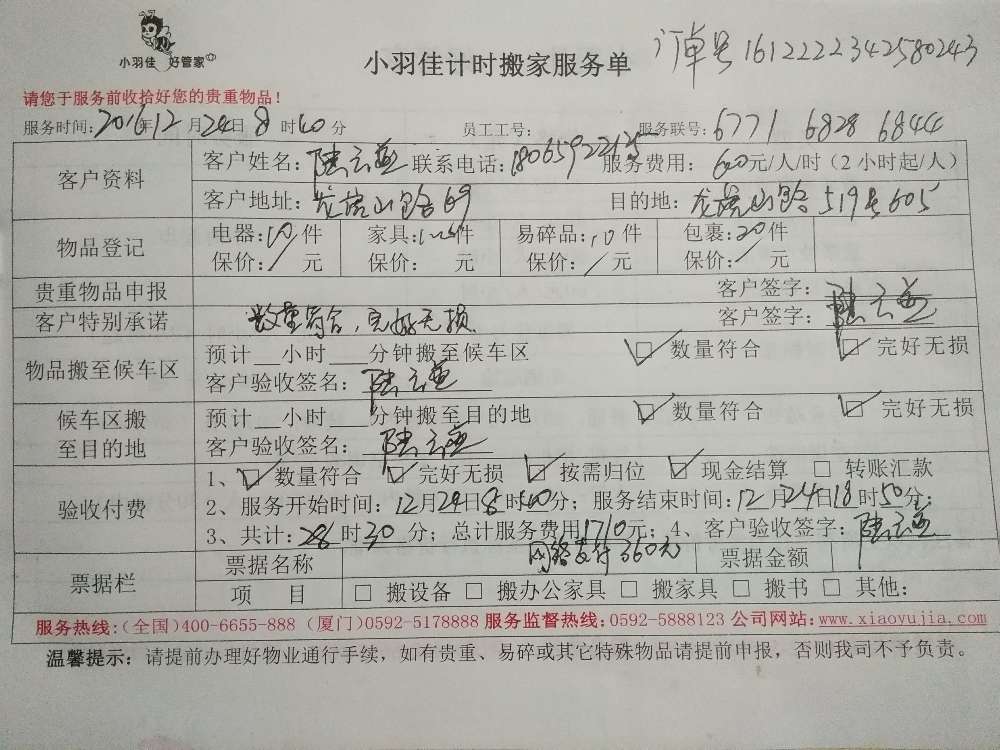 小羽佳 好管家
小羽佳计时搬家服务单
订单号 1612222342580243
请您于服务前收拾好您的贵重物品!
服务时间:2016年12月24日8时40分 员工工号: 服务联号:6771 6828 6844
客户资料
客户姓名:陆云燕 联系电话:18065922125 服务费用:60元/人/时(2小时起/人)
客户地址:龙虎山路69 目的地:龙虎山路519号605
物品登记
电器:10件 家具:件 易碎品:10件 包裹:20件
保价:/元 保价:/元 保价:/元 保价:/元
贵重物品申报 客户签字:陆云燕
客户特别承诺 数量符合,完好无损. 客户签字:陆云燕
物品搬至候车区
预计__小时___分钟搬至候车区 ☑数量符合 ☑完好无损
客户验收签名:陆云燕
候车区搬至目的地
预计__小时___分钟搬至目的地 ☑数量符合 ☑完好无损
客户验收签名:陆云燕
验收付费
1、☑数量符合 ☑完好无损 ☑按需归位 ☑现金结算 □转账汇款
2、服务开始时间:12月24日8时40分;服务结束时间:12月24日18时50分;
3、共计:28时30分;总计服务费用1710元;4、客户验收签字:陆云燕
网络支付360元
票据栏
票据名称 票据金额
项 目 □搬设备 □搬办公家具 □搬家具 □搬书 □其他:
服务热线:(全国)400-6655-888 (厦门)0592-5178888 服务监督热线:0592-5888123 公司网站:www.xiaoyujia.com
温馨提示:请提前办理好物业通行手续,如有贵重、易碎或其它特殊物品请提前申报,否则我司不予负责。